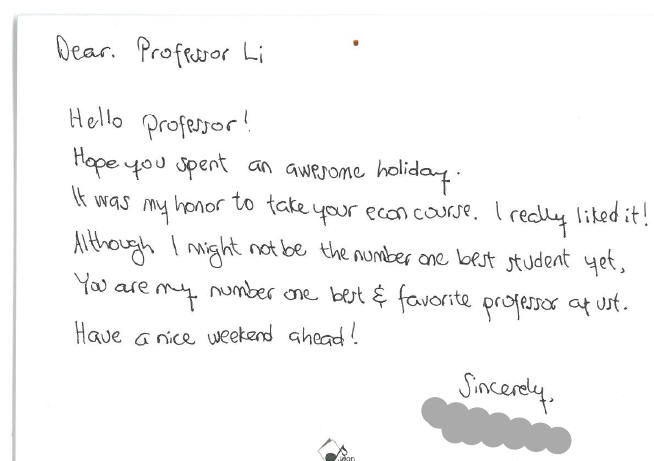 Dear. Professor Li
Hello professor!
Hope you spent an awesome holiday.
It was my honor to take your econ course. I really liked it!
Although I might not be the number one best student yet,
You are my number one best & favorite professor at ust.
Have a nice weekend ahead!
Sincerely,